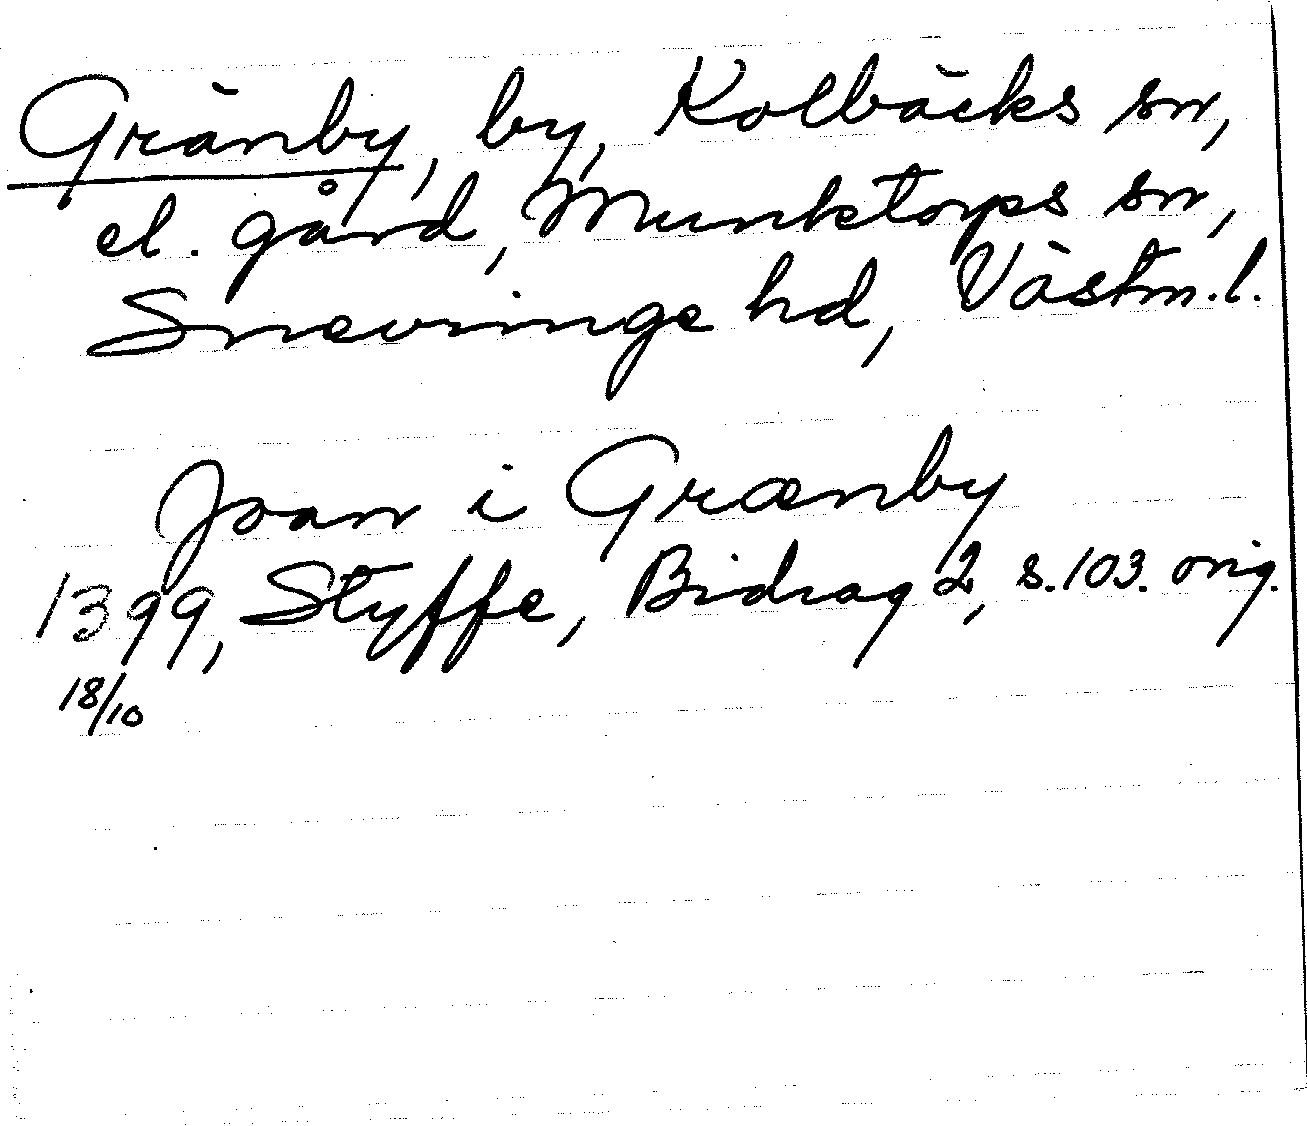 Gränby, by, Kolbäcks sn,
el. gård, Munktorps sn,
Snevringe hd, Västm.l.
Joan i Grænby
1399, Styffe, Bidrag 2, s.103. orig.
18/10